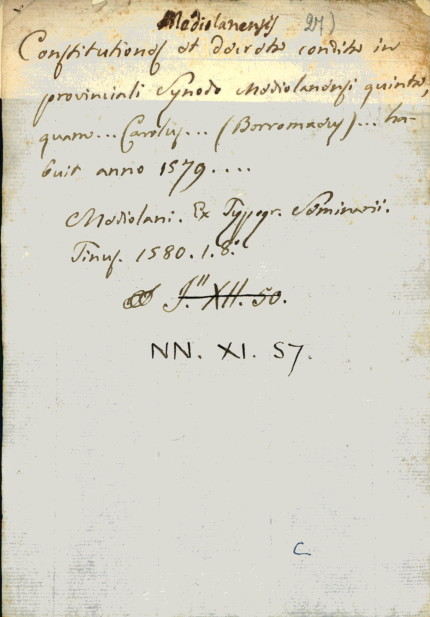 Mediolanensis 27)
Constitutiones et decreta condita in
provinciali Synodo Mediolanensi quinta,
quam... Carolus... (Borromaeus)... ha-
buit anno 1579....
Mediolani. Ex Typogr. Seminarii.
1580. 1. 8.°
J." XII. 50.
NN. XI. 57.
C